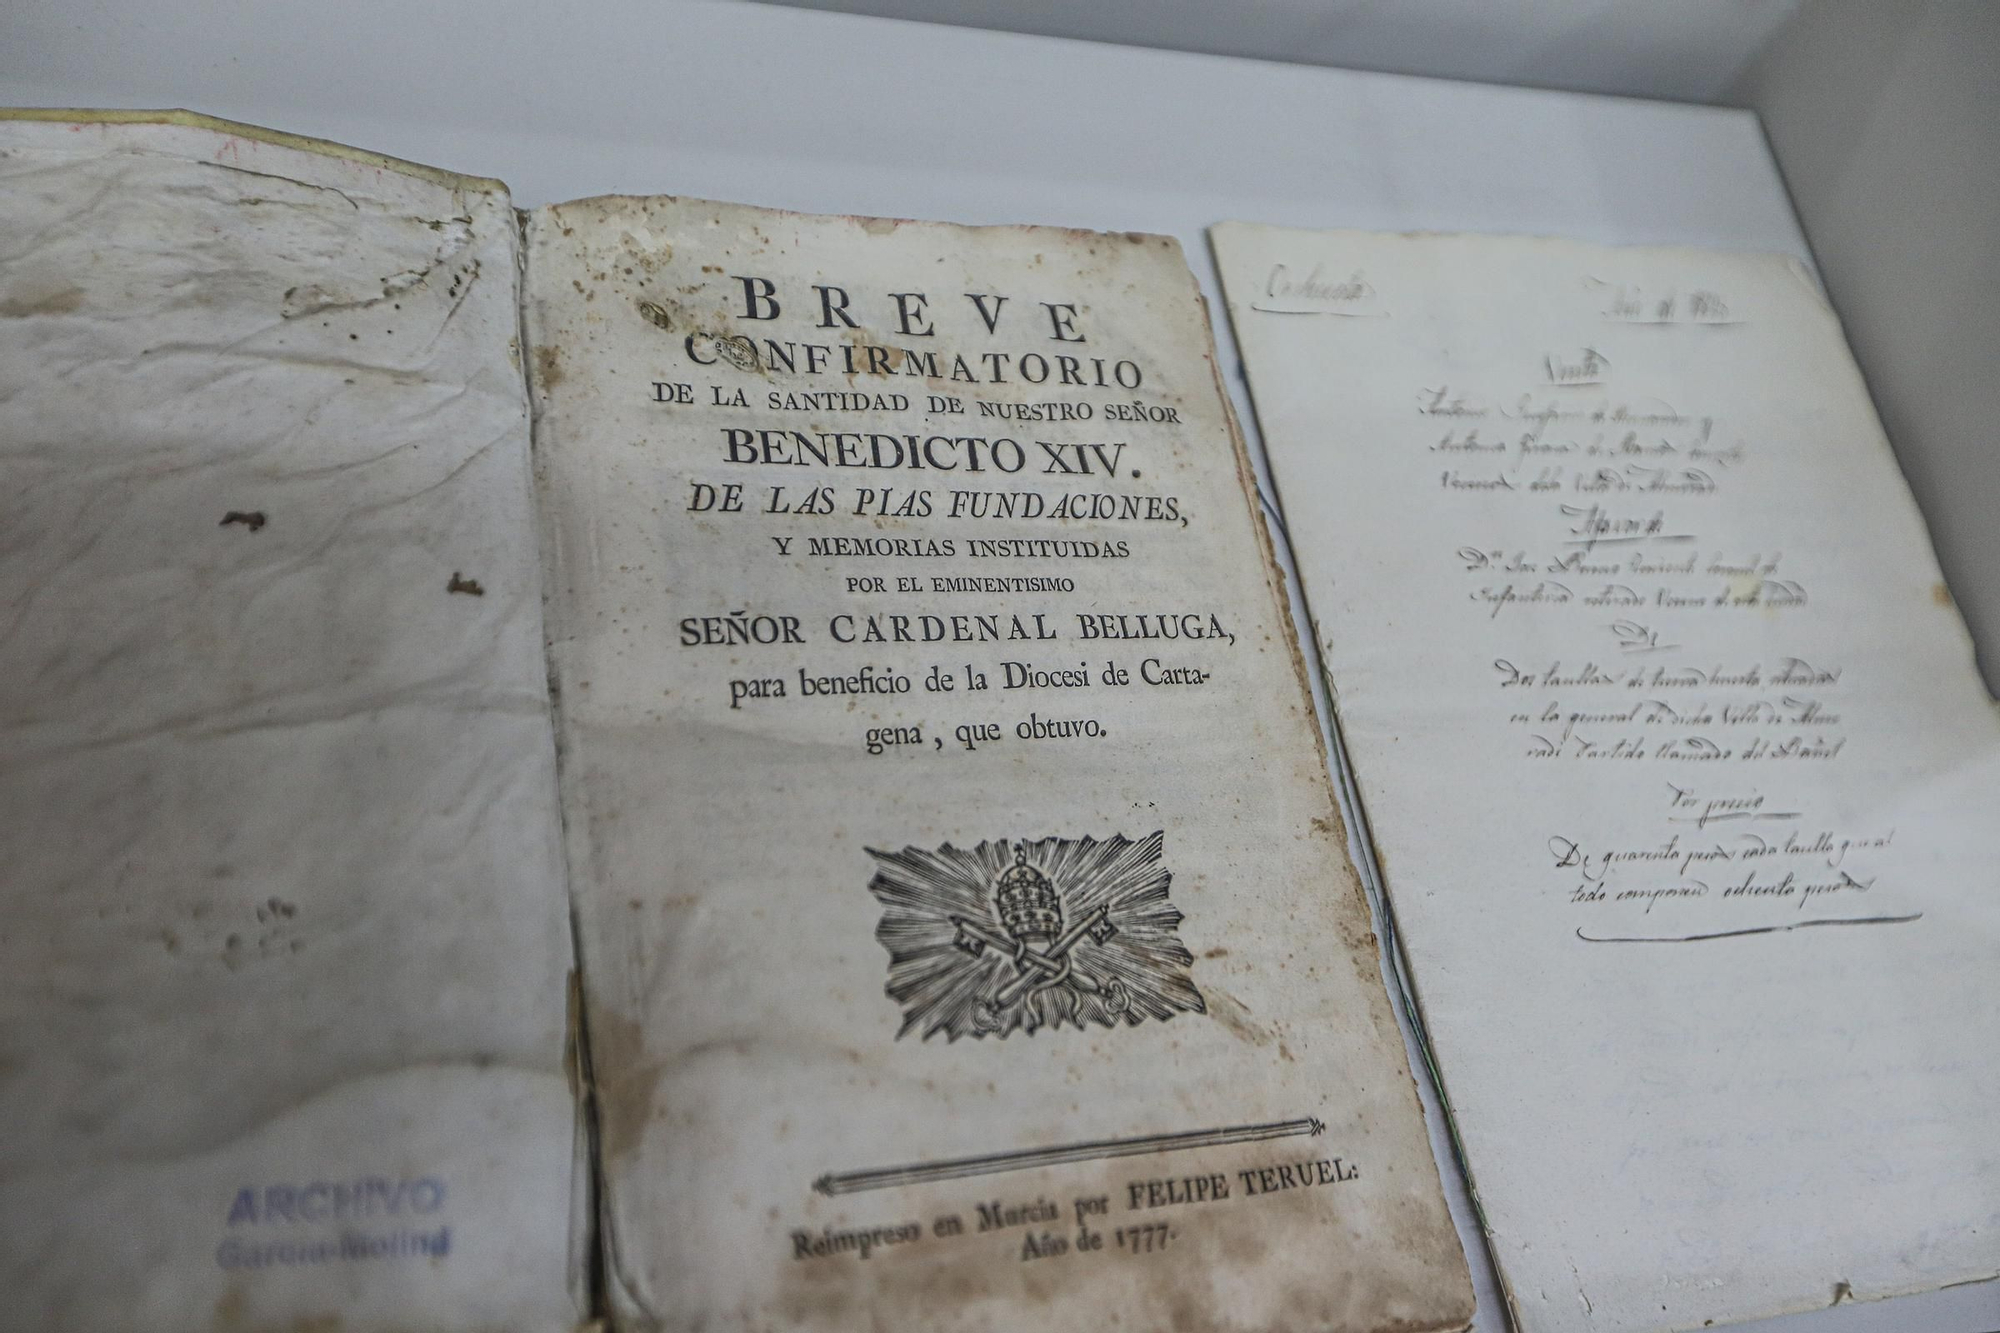 ARCHIVO
BREVE
CONFIRMATORIO
DE LA SANTIDAD DE NUESTRO SEÑOR
BENEDICTO XIV.
DE LAS PIAS FUNDACIONES,
Y MEMORIAS INSTITUIDAS
POR EL EMINENTISIMO
SEÑOR CARDENAL BELLUGA,
para beneficio de la Diocesi de Carta-
gena, que obtuvo.
Reimpreso en Murcia por FELIPE TERUEL:
Año de 1777.
Venta
Antonio
Antonia
Vecinos dela Villa de
Afavor de
Infanteria retirado Vecino de esta
De
Dos taullas de tierra huerta situadas
en la general de dicha Villa de Almo
radi Partido llamado del
Por precio
De quarenta pesos cada taulla que al
todo componen ochenta pesos